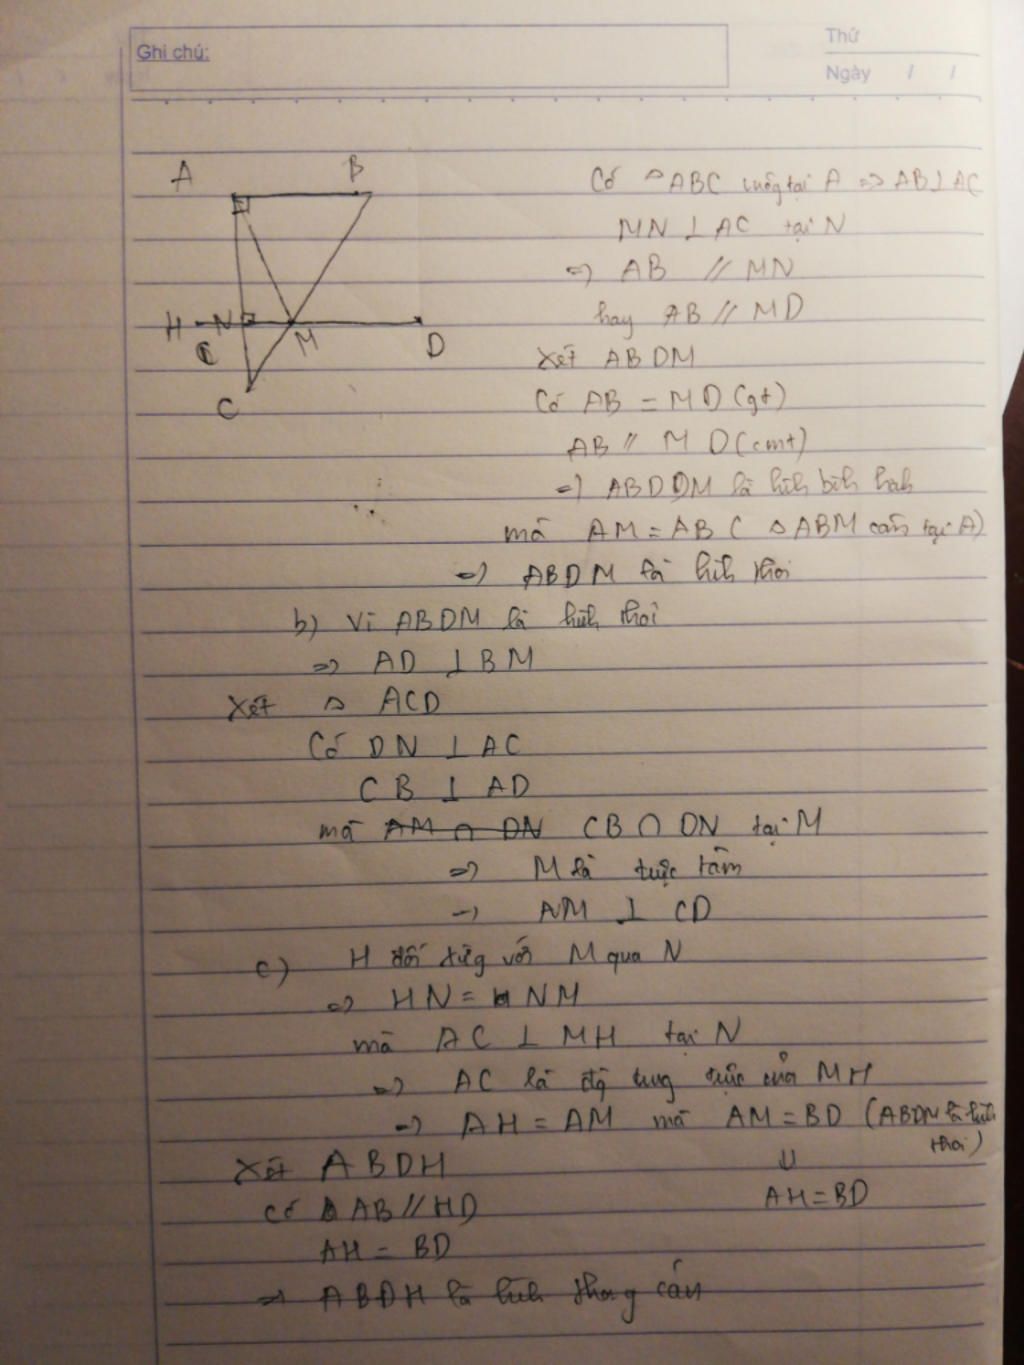 Ghi chú:
Thứ
Ngày / /
A B
H N M D
C
Có △ABC vuông tại A => AB⊥AC
MN ⊥ AC tại N
=> AB // MN
hay AB // MD
Xét ABDM
Có AB = MD (gt)
AB // MD (cmt)
=> ABDM là hình bình hành
mà AM = AB ( △ ABM cân tại A)
=> ABDM là hình thoi
b) Vì ABDM là hình thoi
=> AD ⊥ BM
Xét △ ACD
Có DN ⊥ AC
CB ⊥ AD
mà AM ∩ DN CB ∩ DN tại M
=> M là trực tâm
=> AM ⊥ CD
c) H đối xứng với M qua N
=> HN = NM
mà AC ⊥ MH tại N
=> AC là đg trung trực của MH
=> AH = AM mà AM = BD (ABDM là hình thoi)
⇓
Xét ABDH
AH = BD
có AB // HD
AH = BD
=> ABDH là hình thang cân